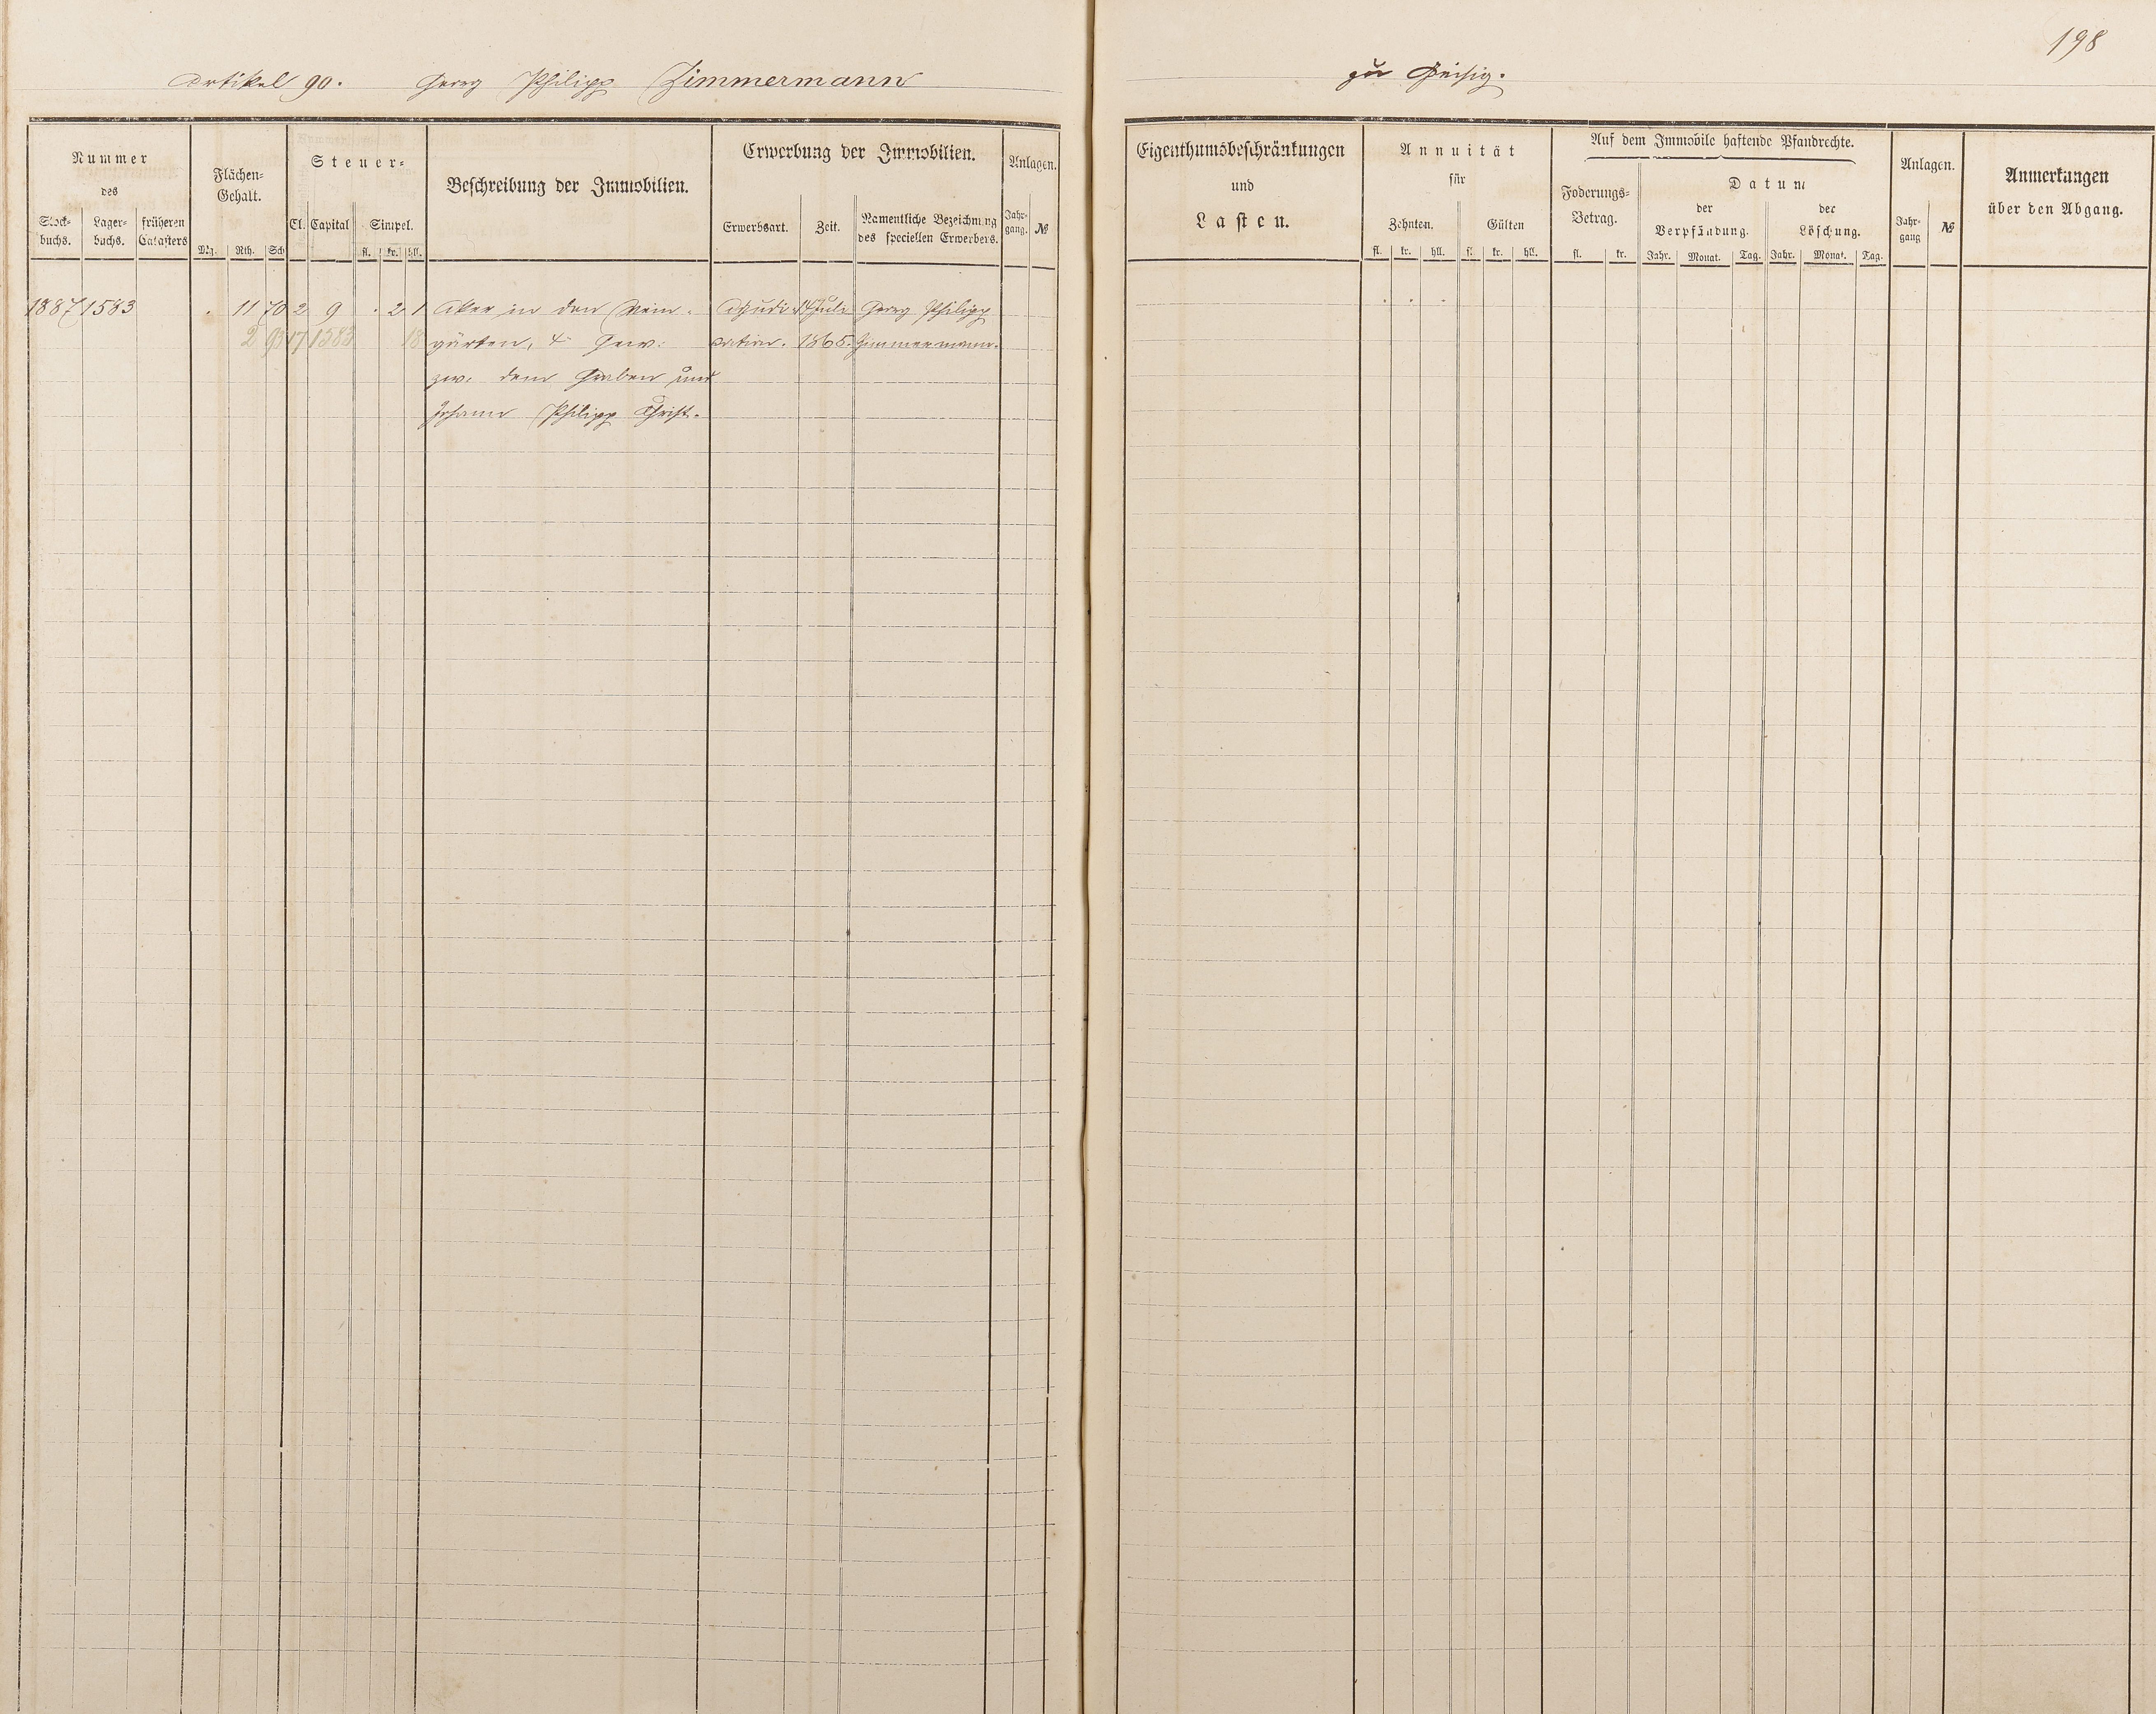 198
Artikel 90. Georg Philipp Zimmermann
zu Geisig.
Nummer
des
Stock-
buchs.
Lager-
buchs.
früheren
Catasters
Flächen-
Gehalt.
Mg. Rth. Sch
Steuer-
Cl. Capital Simpel.
fl. kr. hll.
Beschreibung der Immobilien.
Erwerbung der Immobilien.
Erwerbsart. Zeit.
Namentliche Bezeichnung
des speciellen Erwerbers.
Anlagen.
Jahr-
gang. №
1887 1583 . 11 70 2 9 . 2 1 Aker in den Wein- Adjudi- 14 Juli Georg Philipp
2 93 17 1583 18 gärten, 4r Gew: cation. 1865. Zimmermann.
zw. dem Graben und
Johann Philipp Christ.
Eigenthumsbeschränkungen
und
Lasten.
Annuität
für
Zehnten. Gülten
fl. kr. hll. fl. kr. hll.
Auf dem Immobile haftende Pfandrechte.
Foderungs-
Betrag.
fl. kr.
Datum
der
Verpfändung.
Jahr. Monat. Tag.
der
Löschung.
Jahr. Monat. Tag.
Anlagen.
Jahr-
gang №
Anmerkungen
über den Abgang.